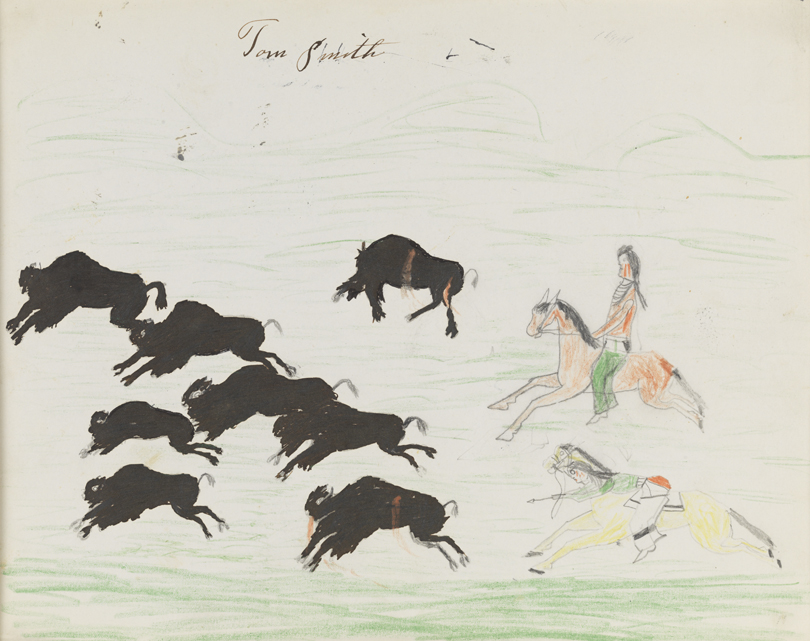 Tom Smith